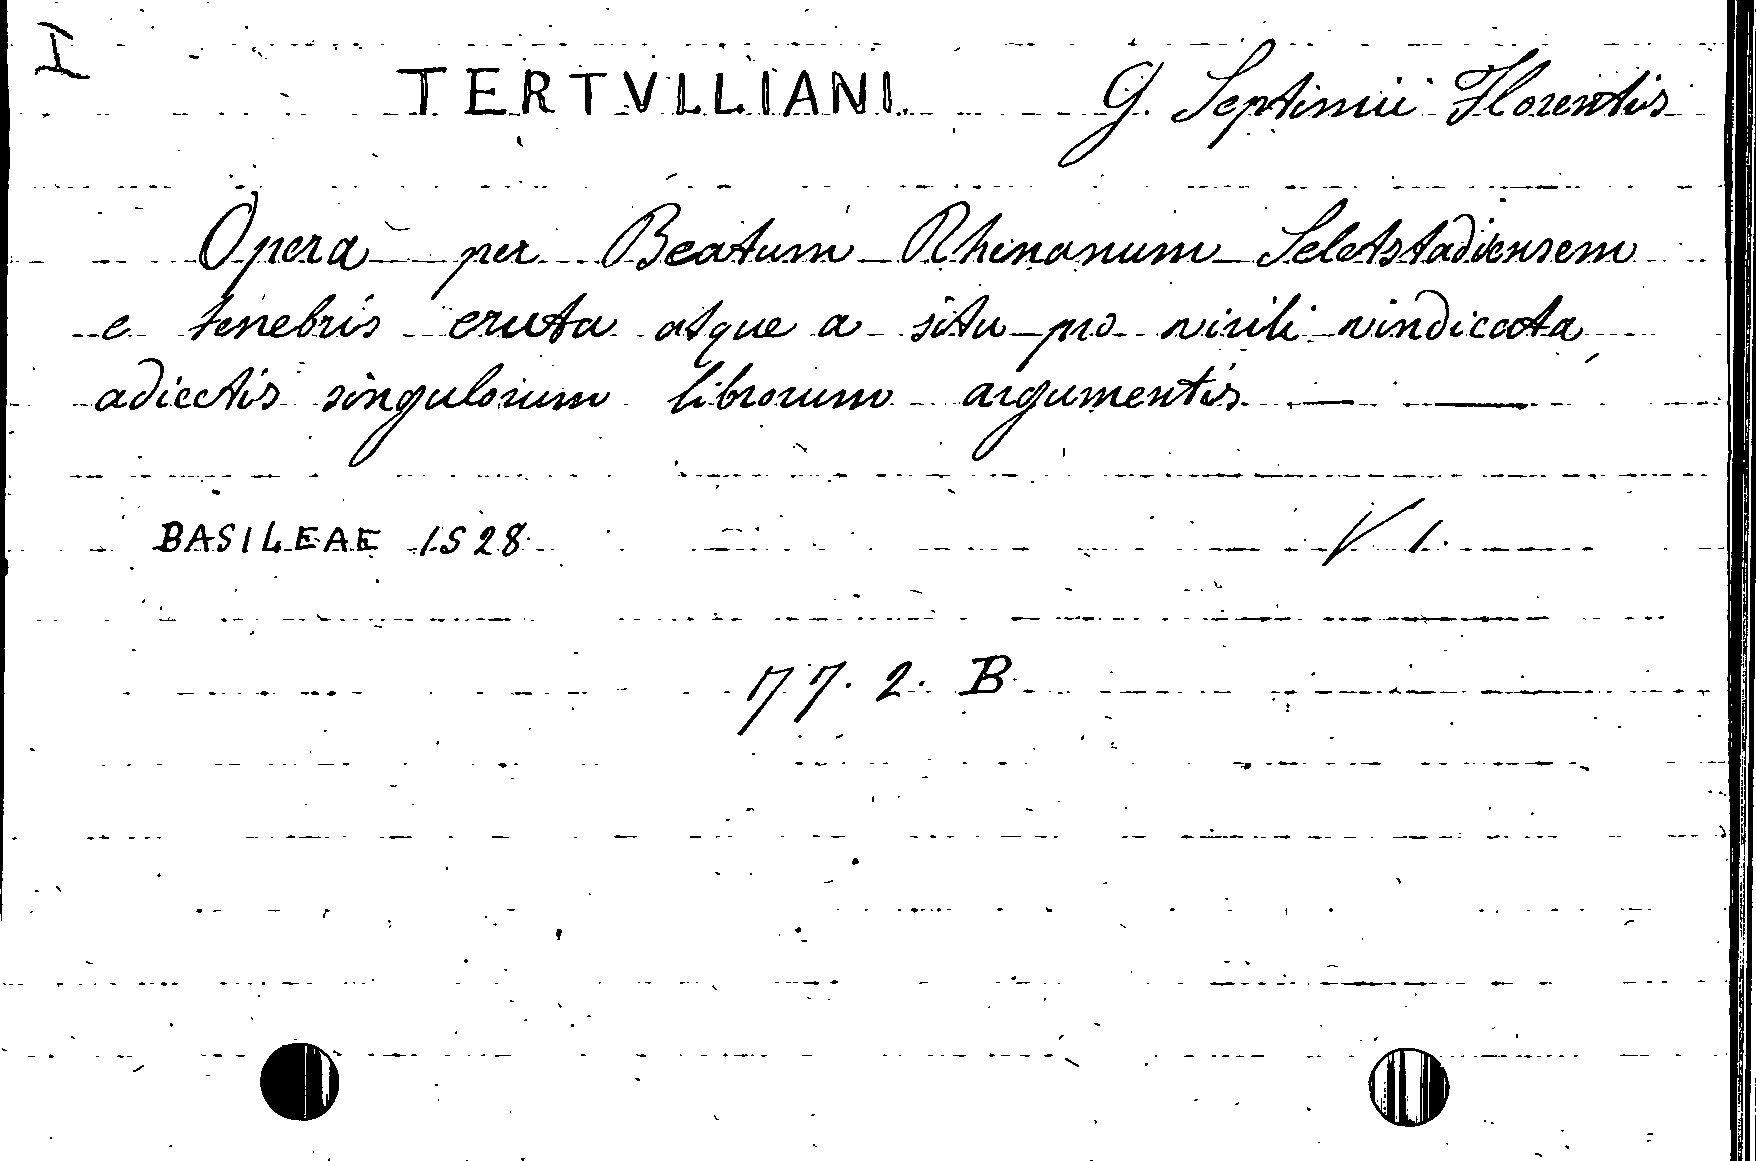 I
TERTVLLIANI G. Septimii Florentis
Opera per Beatum Rhenanum Seletstadiensem
e tenebris eruta atque a situ pro virili vindicata,
adiectis singulorum librorum argumentis
BASILEAE 1528 V 1.
77. 2. B